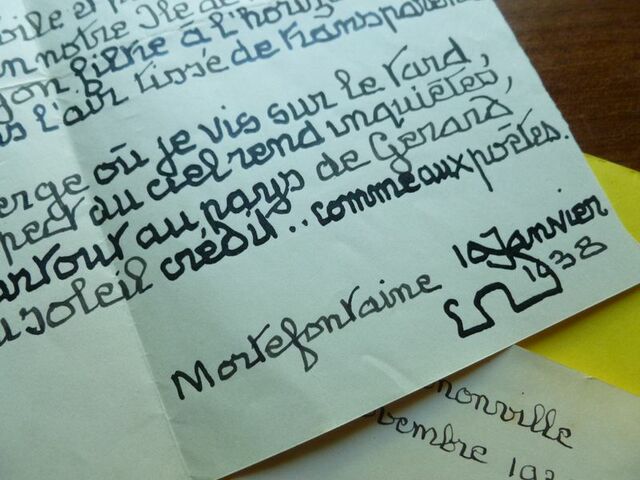 et
notre Ile de
filtre à l'horizon
l'air tissé de transparence
où je vis sur le tard,
du ciel rend inquiètes,
au pays de Gerard,
soleil crédit.. comme aux poètes.
Mortefontaine 10 Janvier
1938
nonville
vembre 193